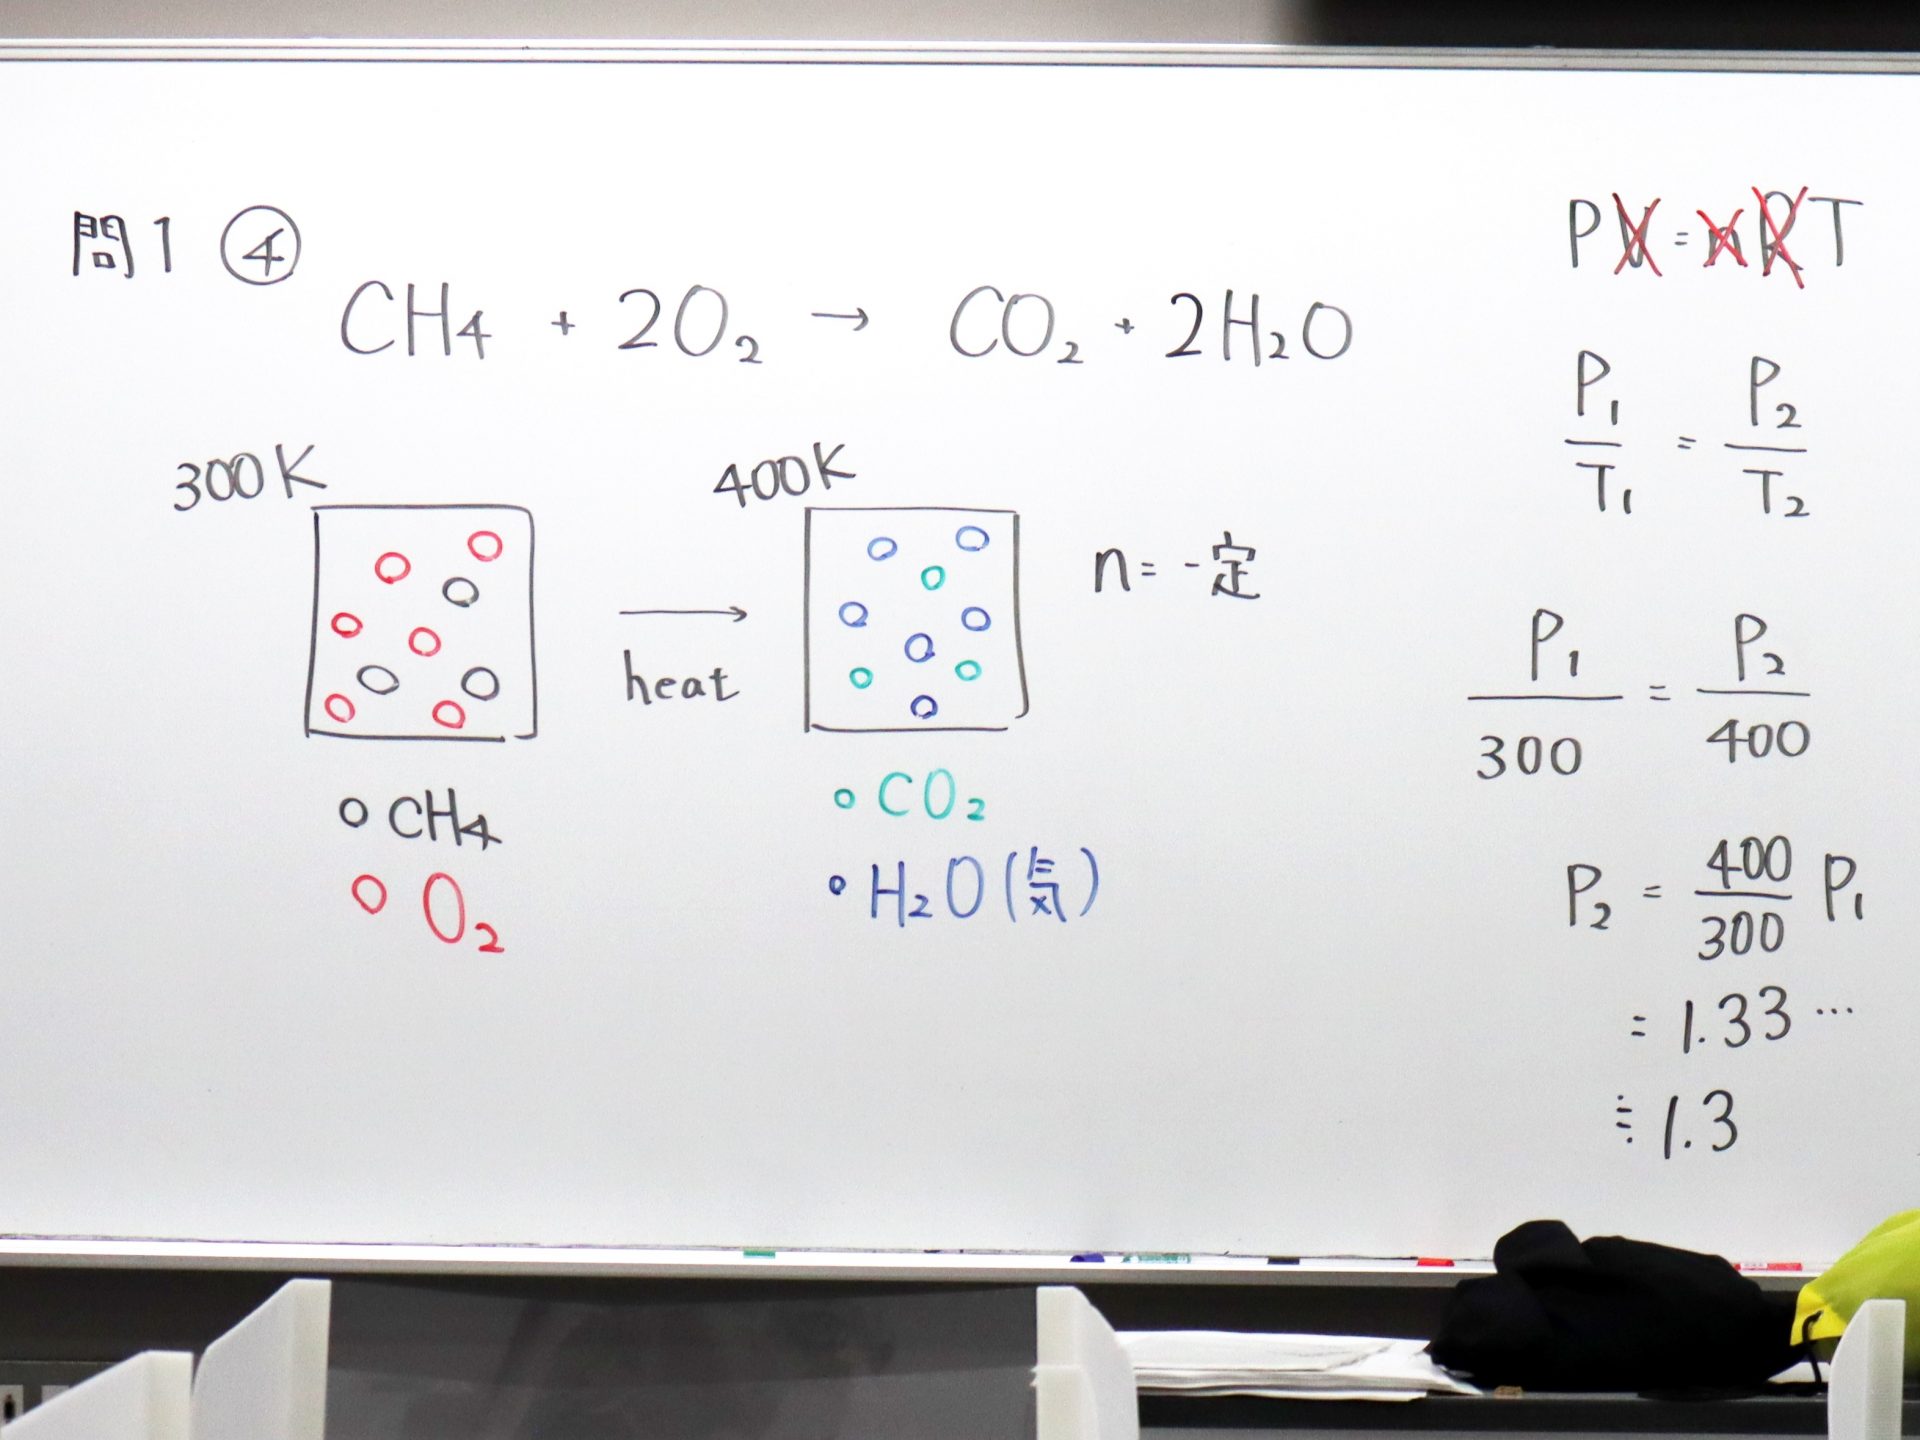 問1 ④
CH4 + 2O2 → CO2 + 2H2O
300K
400K
heat
n = 一定
CH4
O2
CO2
H2O(気)
PV = nRT
P1/T1 = P2/T2
P1/300 = P2/400
P2 = 400/300 P1
= 1.33…
≒ 1.3